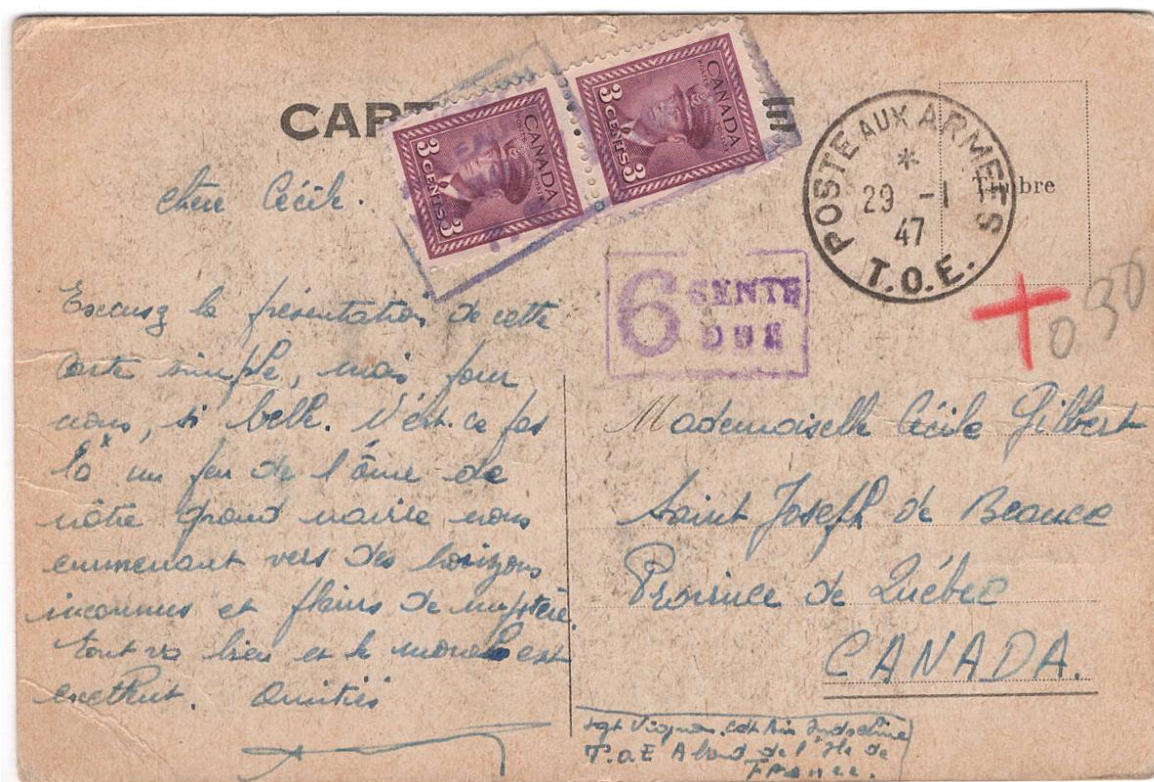 CART
E
CANADA
3 CENTS 3
CANADA
3 CENTS 3
POSTE AUX ARMEES
*
29 -1
47
T.O.E.
Timbre
6 CENTS
DUE
+
0.30
Chère Cécile.
Excusez la présentation de cette
carte simple, mais pour
nous, si belle. N'est-ce pas
là un peu de l'âme de
nôtre grand navire nous
emmenant vers des horizons
inconnus et pleins de mystère.
Tout va bien et le moral est
excellent. Amitiés
Mademoiselle Cécile Gilbert
Saint Joseph de Beauce
Province de Québec
CANADA.
Sgt Vignon Air Indochine
T.O.E A bord de l'Ile de
France.